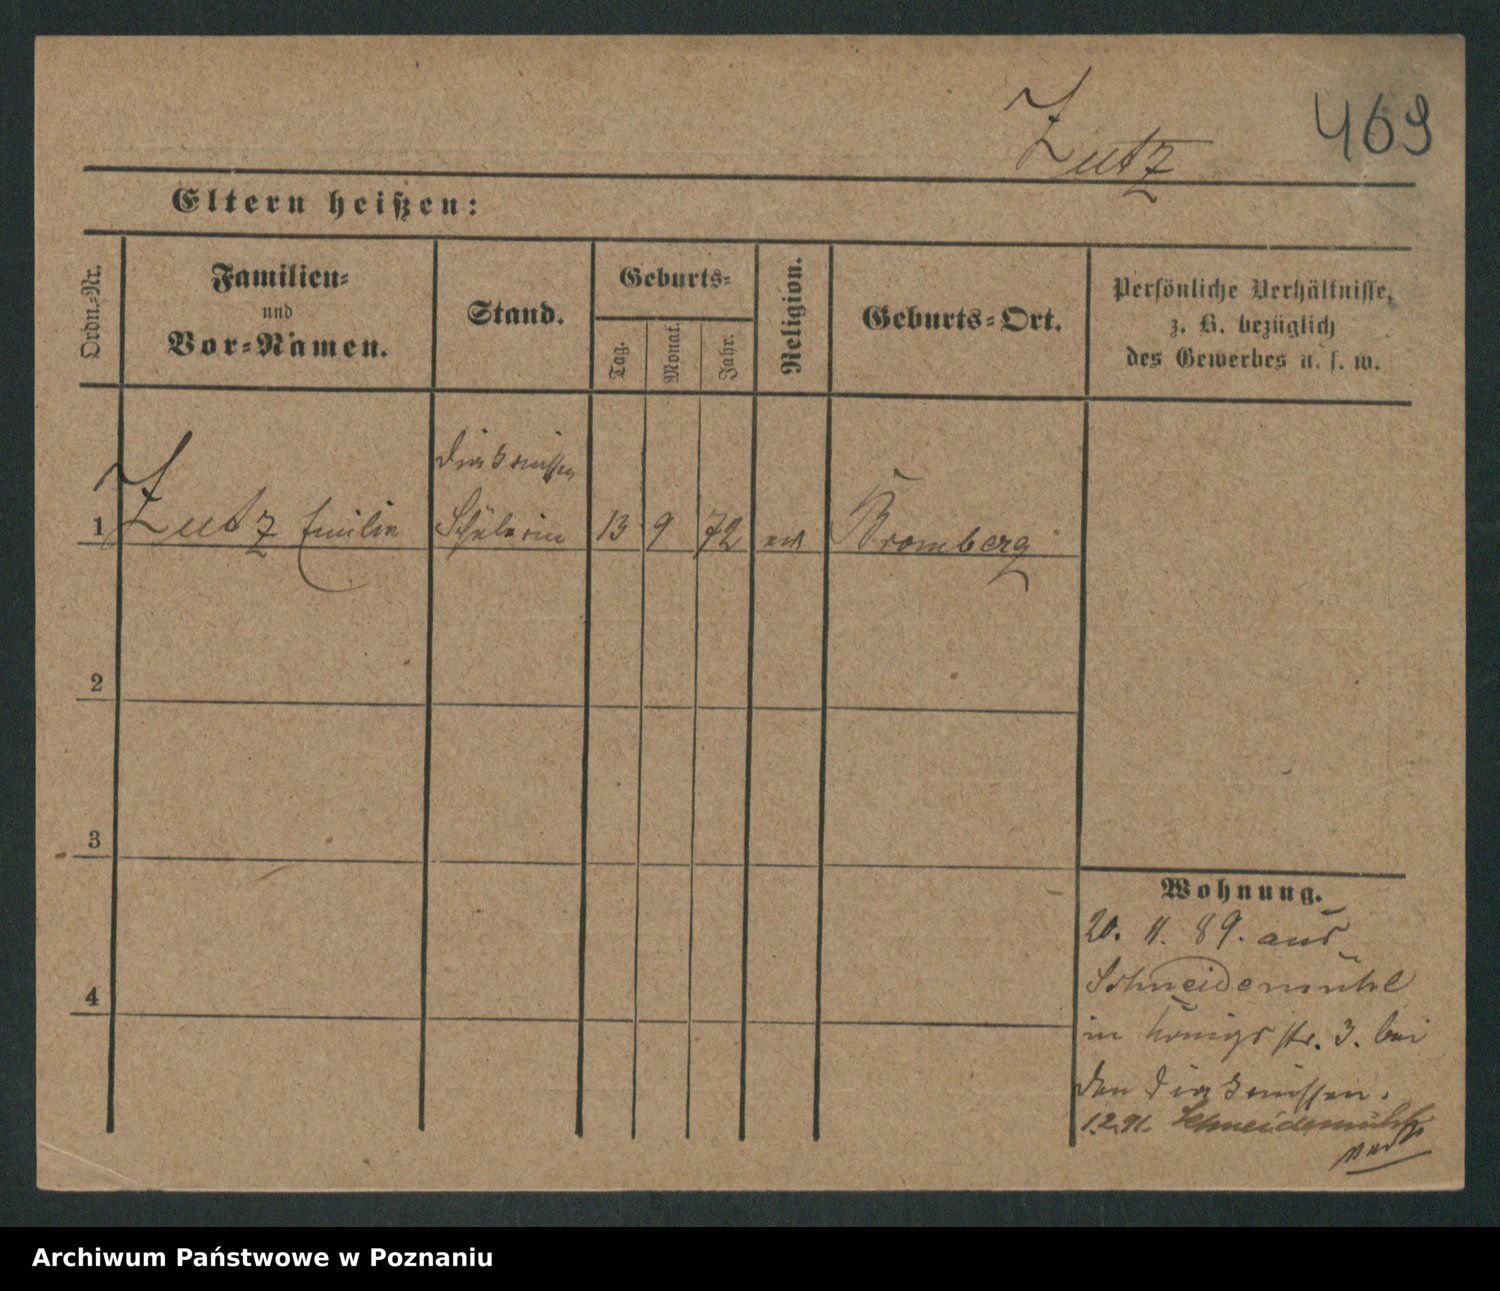 Zutz
469
Eltern heißen:
Ordn.-Nr.
Familien-
und
Vor-Namen.
Stand.
Geburts-
Tag.
Monat.
Jahr.
Religion.
Geburts-Ort.
Persönliche Verhältnisse,
z. B. bezüglich
des Gewerbes u. s. w.
Diakonissen
1 Zutz Emilie Schülerin 13 9 72 ev Bromberg
2
3
4
Wohnung.
20. 11. 89. aus
Schneidemühl
in Königsstr. 3. bei
den Diakonissen.
1.2.91. Schneidemühl
Archiwum Państwowe w Poznaniu